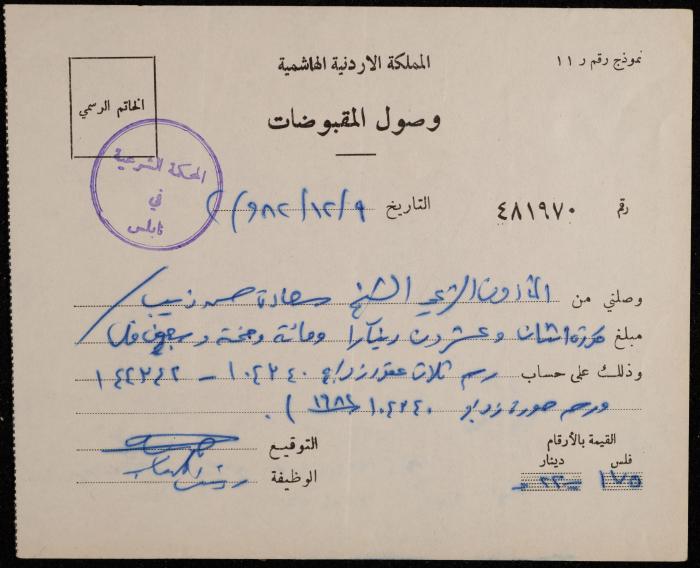 نموذج رقم ر ١١
المملكة الاردنية الهاشمية
الخاتم الرسمي
وصول المقبوضات
المحكمة الشرعية
في
نابلس
رقم ٤٨١٩٧٠
التاريخ ٩/١٢/٩٨٢
وصلني من المأذون الشرعي الشيخ سعادة حسن
مبلغ اثنان وعشرون دينارا ومائة وخمسة وسبعون فلس
وذلك على حساب رسم ثلاث عقود زواج
ورسم صورة زواج
القيمة بالأرقام
فلس دينار
١٧٥ ٢٢
التوقيع
الوظيفة